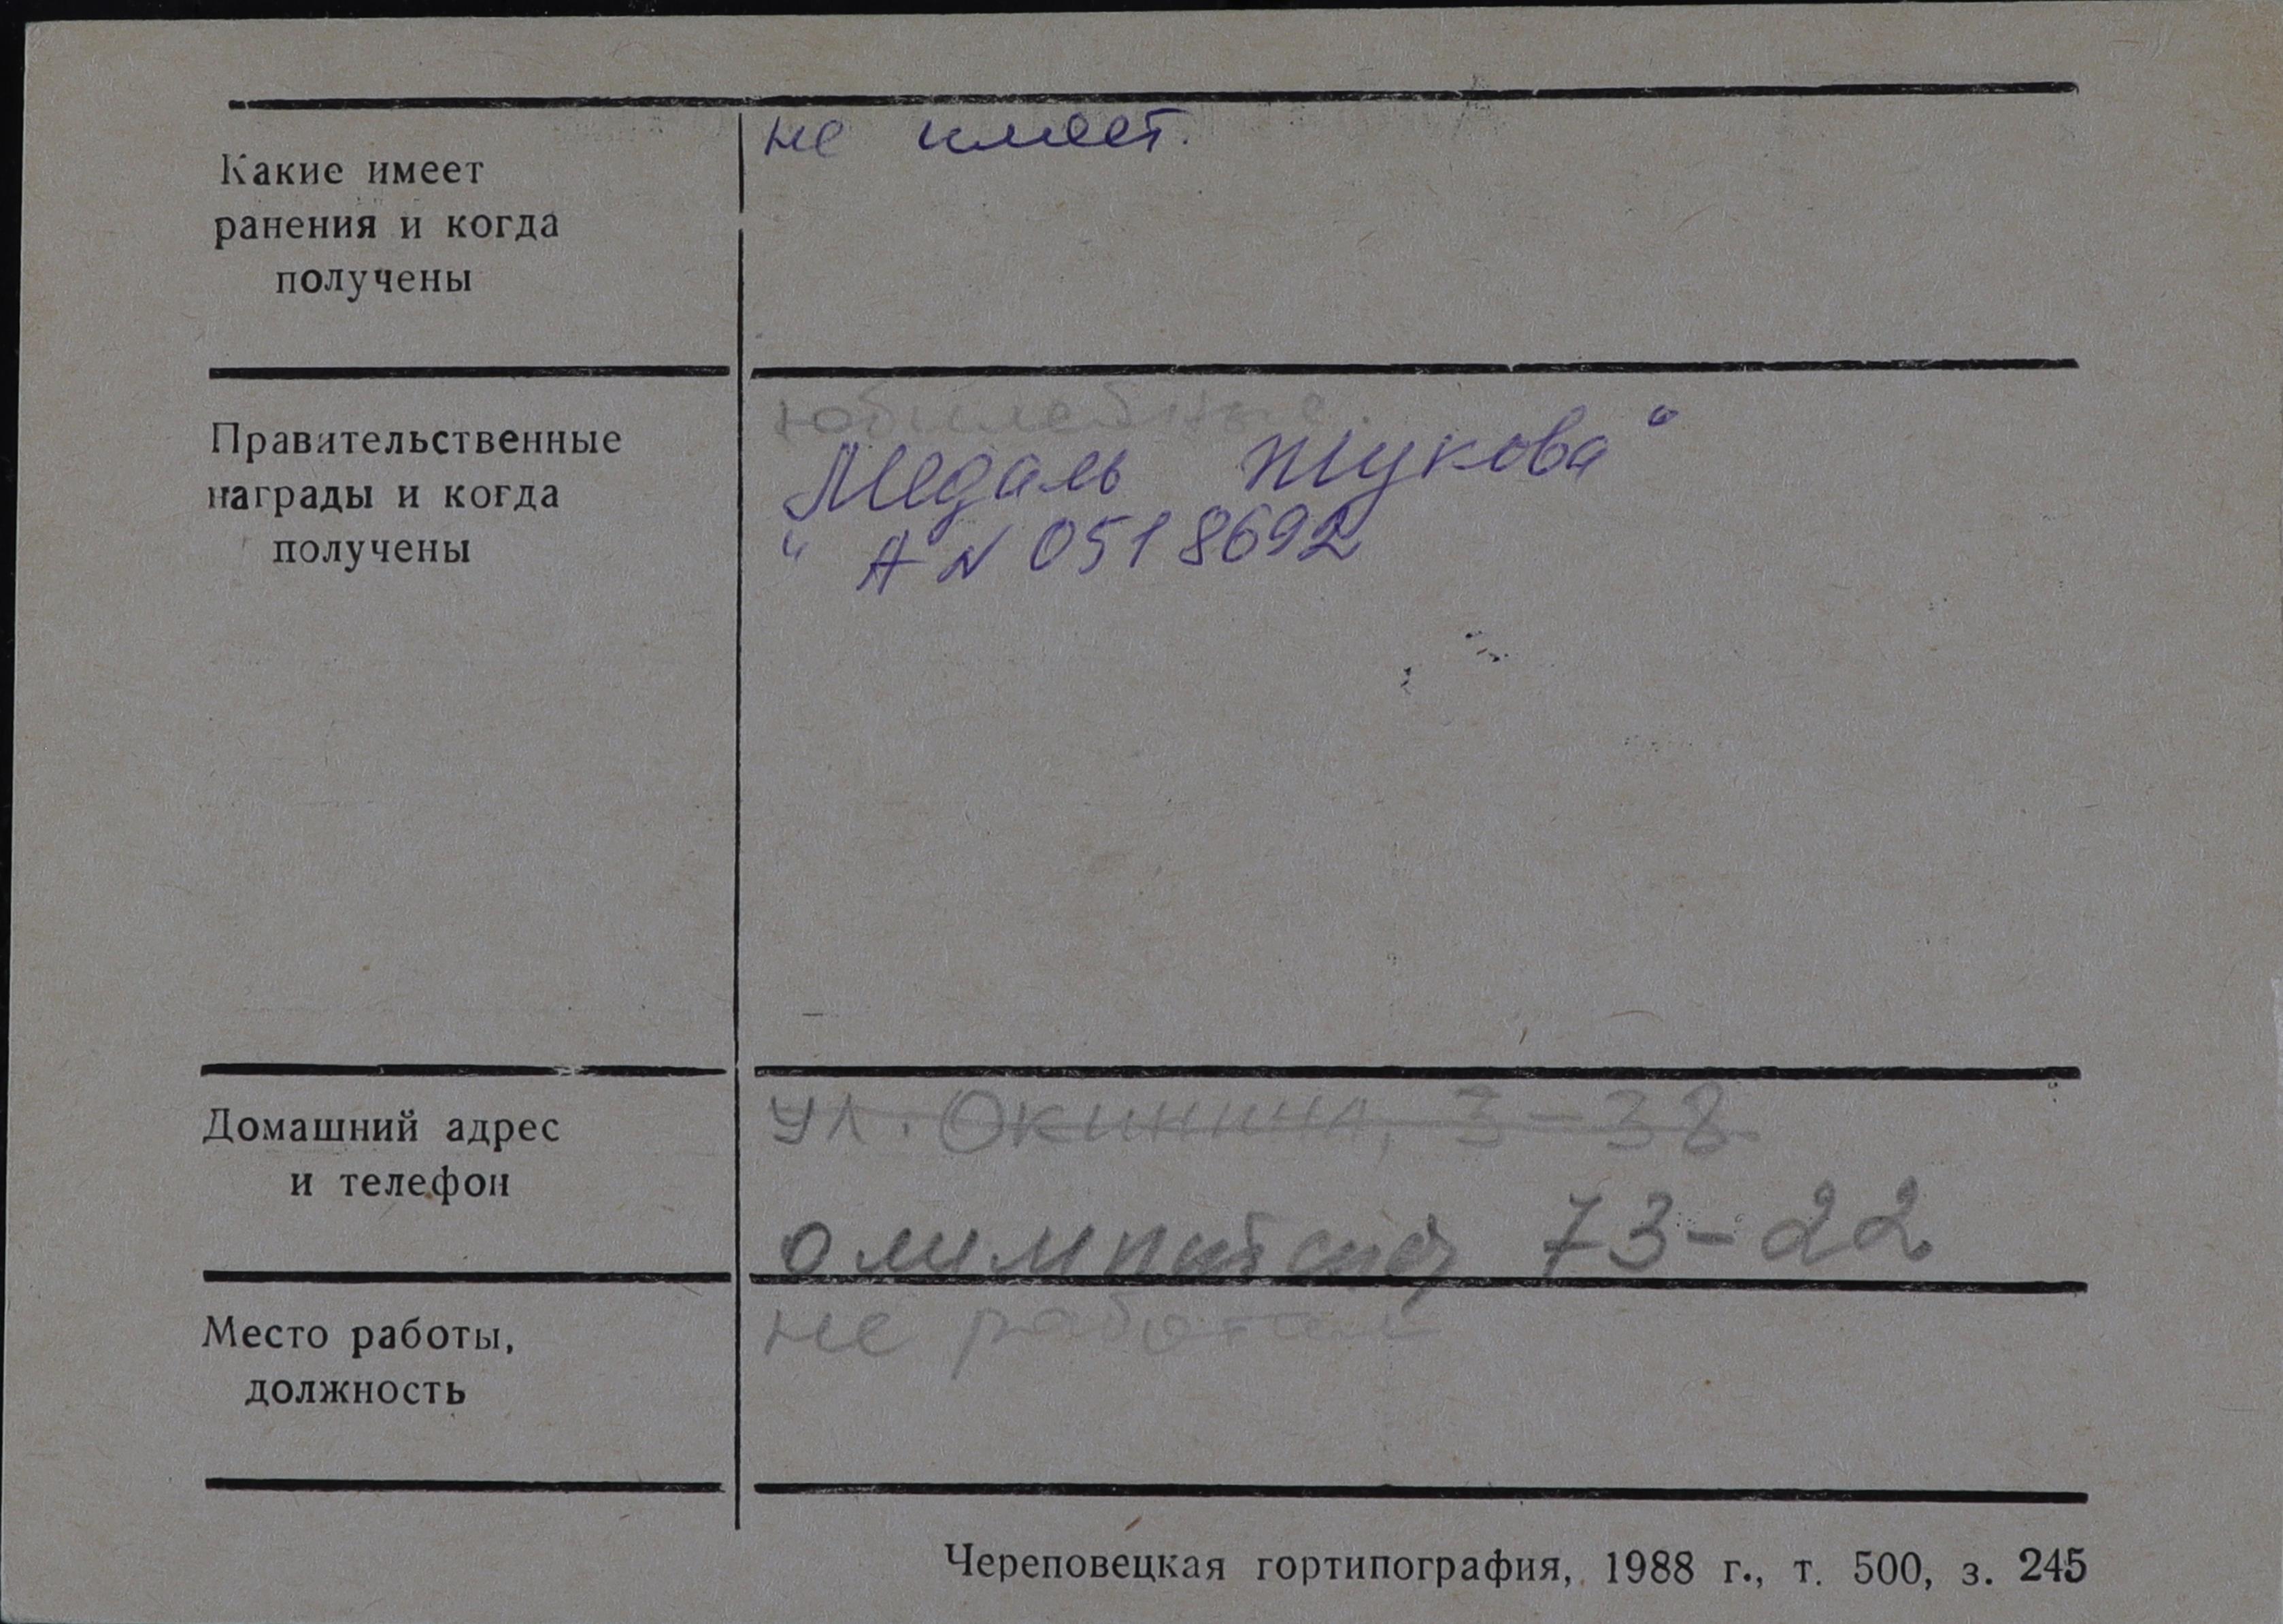 Какие имеет
ранения и когда
получены
не имеет.
Правительственные
награды и когда
получены
юбилейные.
Медаль Жукова"
" А N 0518692
Домашний адрес
и телефон
ул. Окинина, 3-38
олимпийская 73-22
Место работы,
должность
не работает
Череповецкая гортипография, 1988 г., т. 500, з. 245